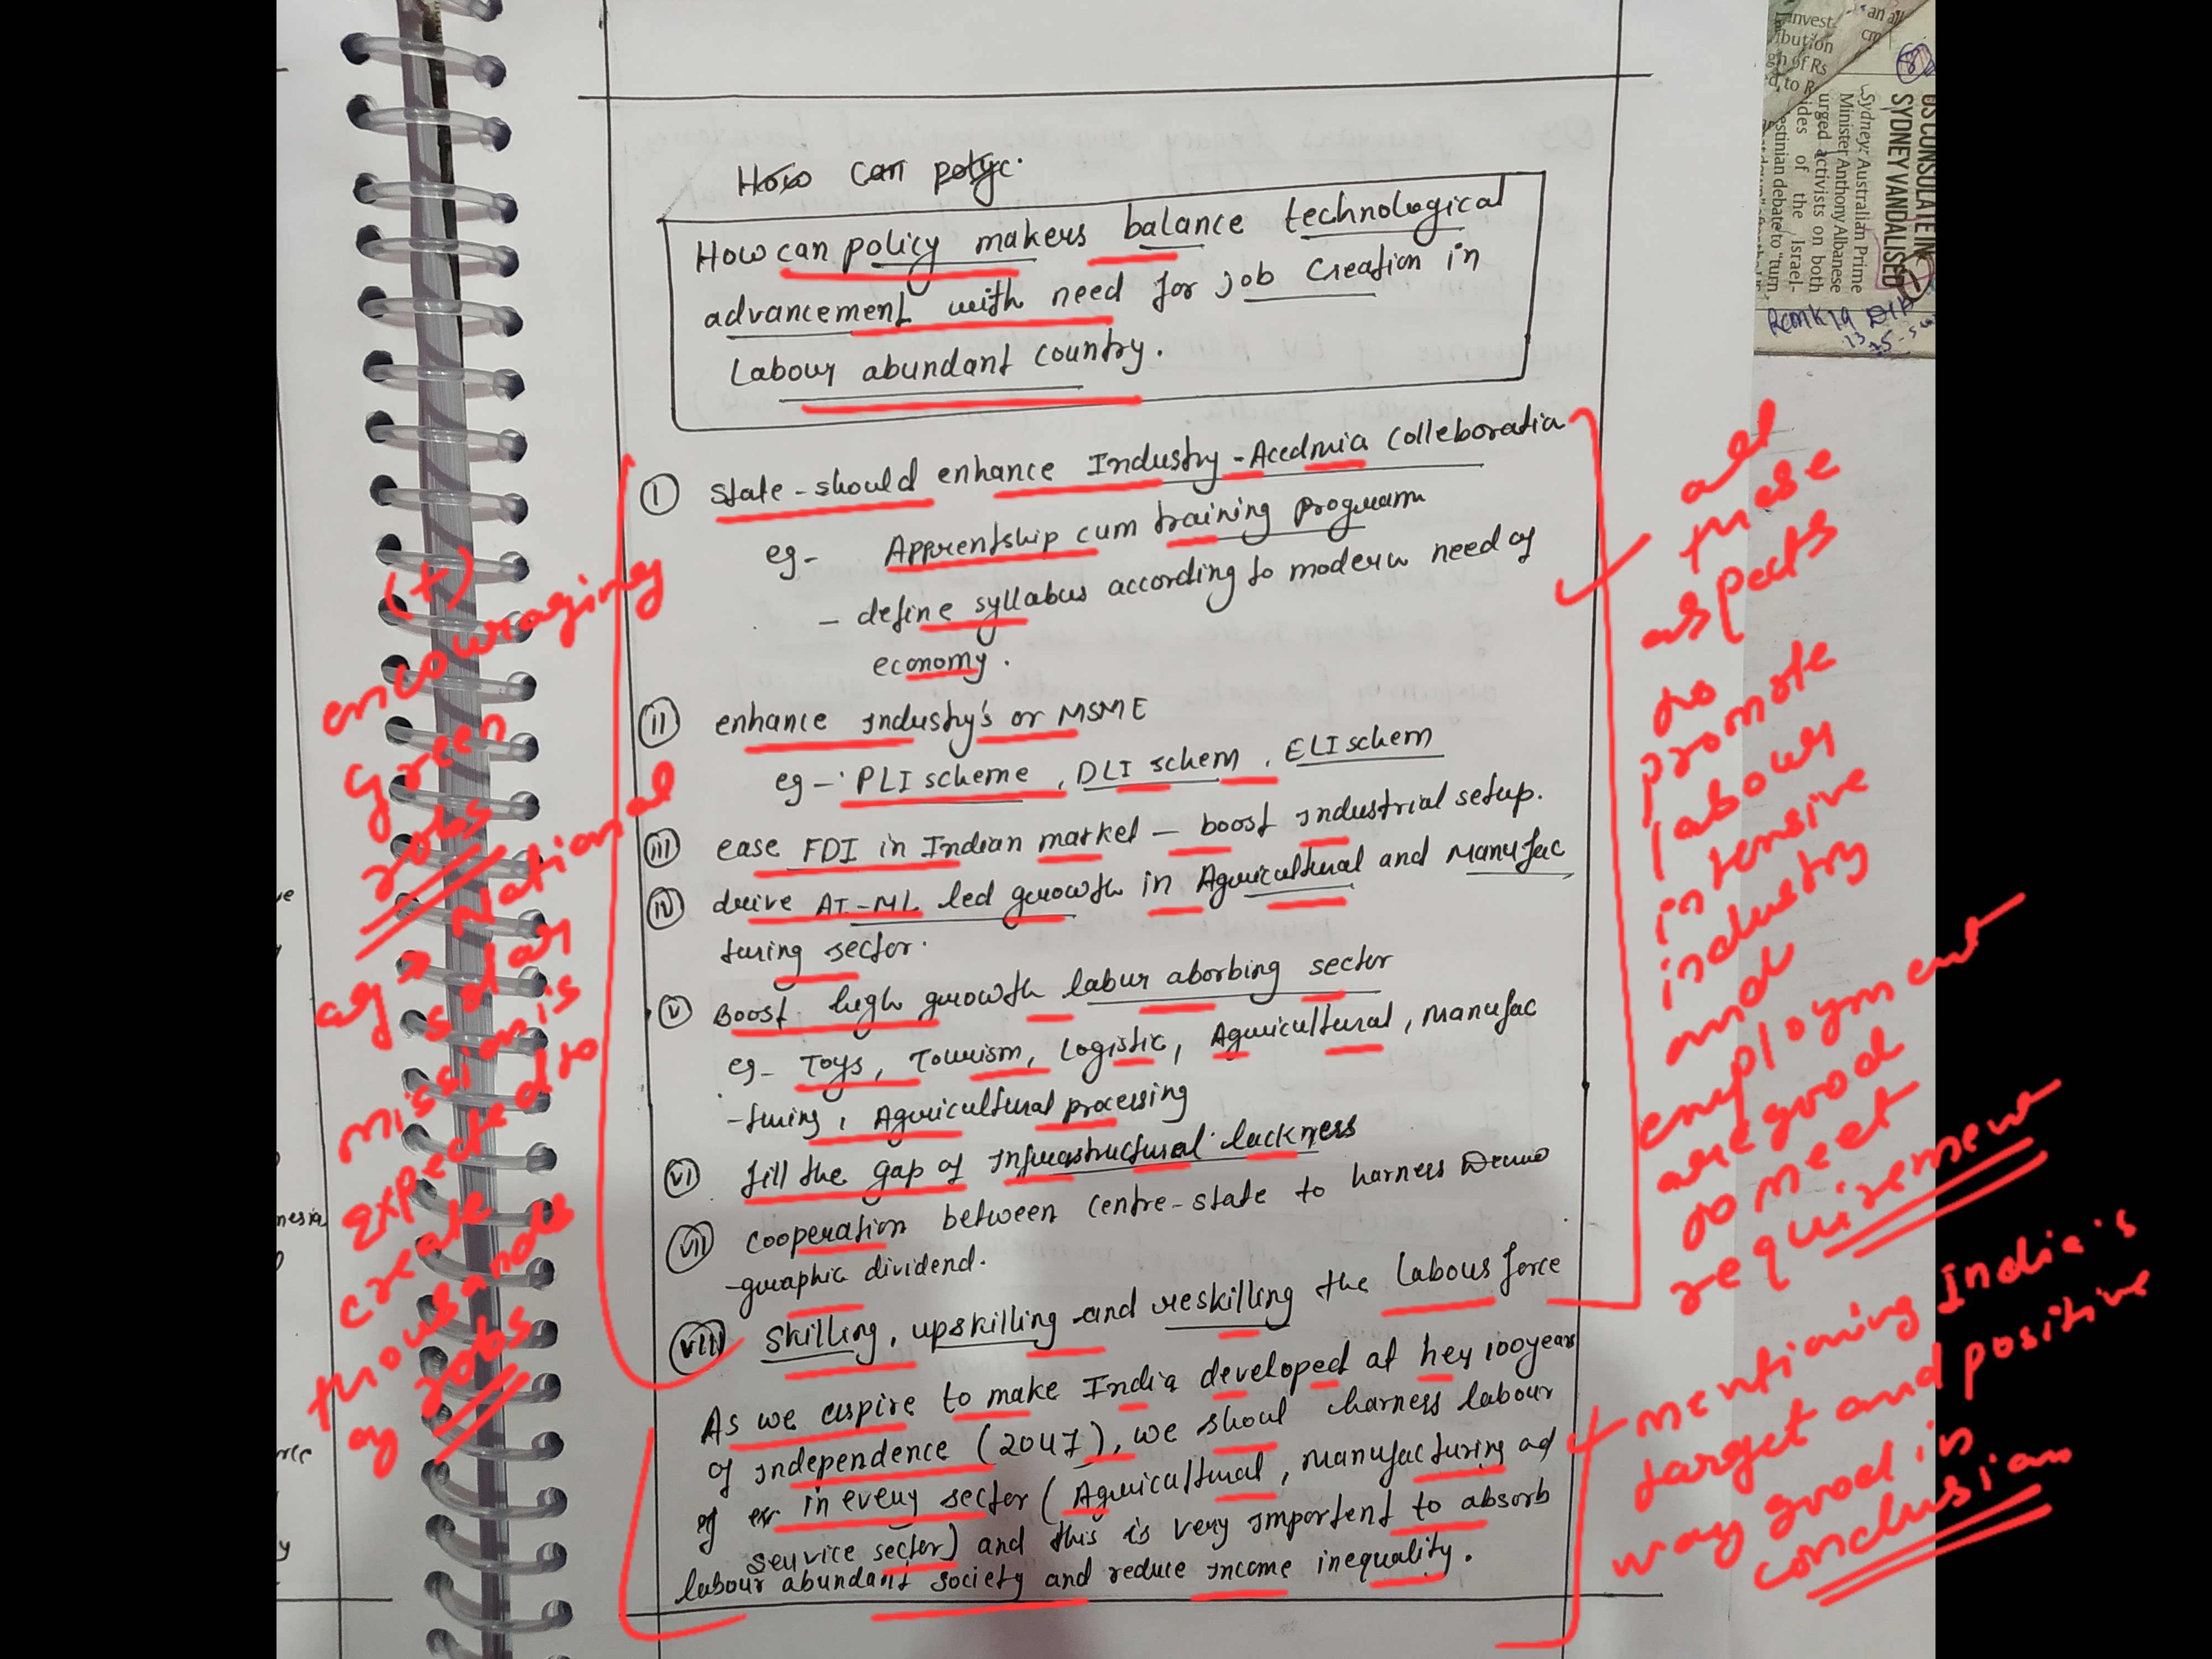 How can polyc.
How can policy makers balance technological
advancement with need for job creation in
Labour abundant country.
(I) State - should enhance Industry - Acedmia Colleboratia
eg- Apprentship cum training program
- define syllabus according to modern need of
economy.
(II) enhance industry's or MSME
eg - PLI scheme, DLI schem, ELI schem
(III) ease FDI in Indian market - boost industrial setup.
(IV) drive AI-ML led growth in Agricultural and Manufac
turing sector.
(V) Boost high growth labur aborbing sector
eg- Toys, Tourism, Logistic, Agricultural, Manufac
-turing, Agricultural processing
(VI) fill the gap of Infrastructural lackness
(VII) cooperation between Centre-state to harness Demo
-graphic dividend.
(VIII) Skilling, upskilling and reskilling the Labour force
As we aspire to make India developed at hey 100 years
of independence (2047), we shoul harness labour
of in every sector (Agricultural, manufacturing ad
service sector) and this is very importent to absorb
labour abundant society and reduce income inequality.
(+)
encouraging
Green
Jobs
eg → National
solar
mission is
expected to
create
thousands
of Jobs
all
these
aspects
to
promote
labour
intensive
industry
and
employment
are good
to meet
requirement
mentioning India's
target and positive
way good in
conclusion
US CONSULATE IN
SYDNEY VANDALISED
Sydney: Australian Prime
Minister Anthony Albanese
urged activists on both
sides of the Israel-
estinian debate to "turn
invest-
ibution
gh of Rs
ed, to R
an all
cm
nesia